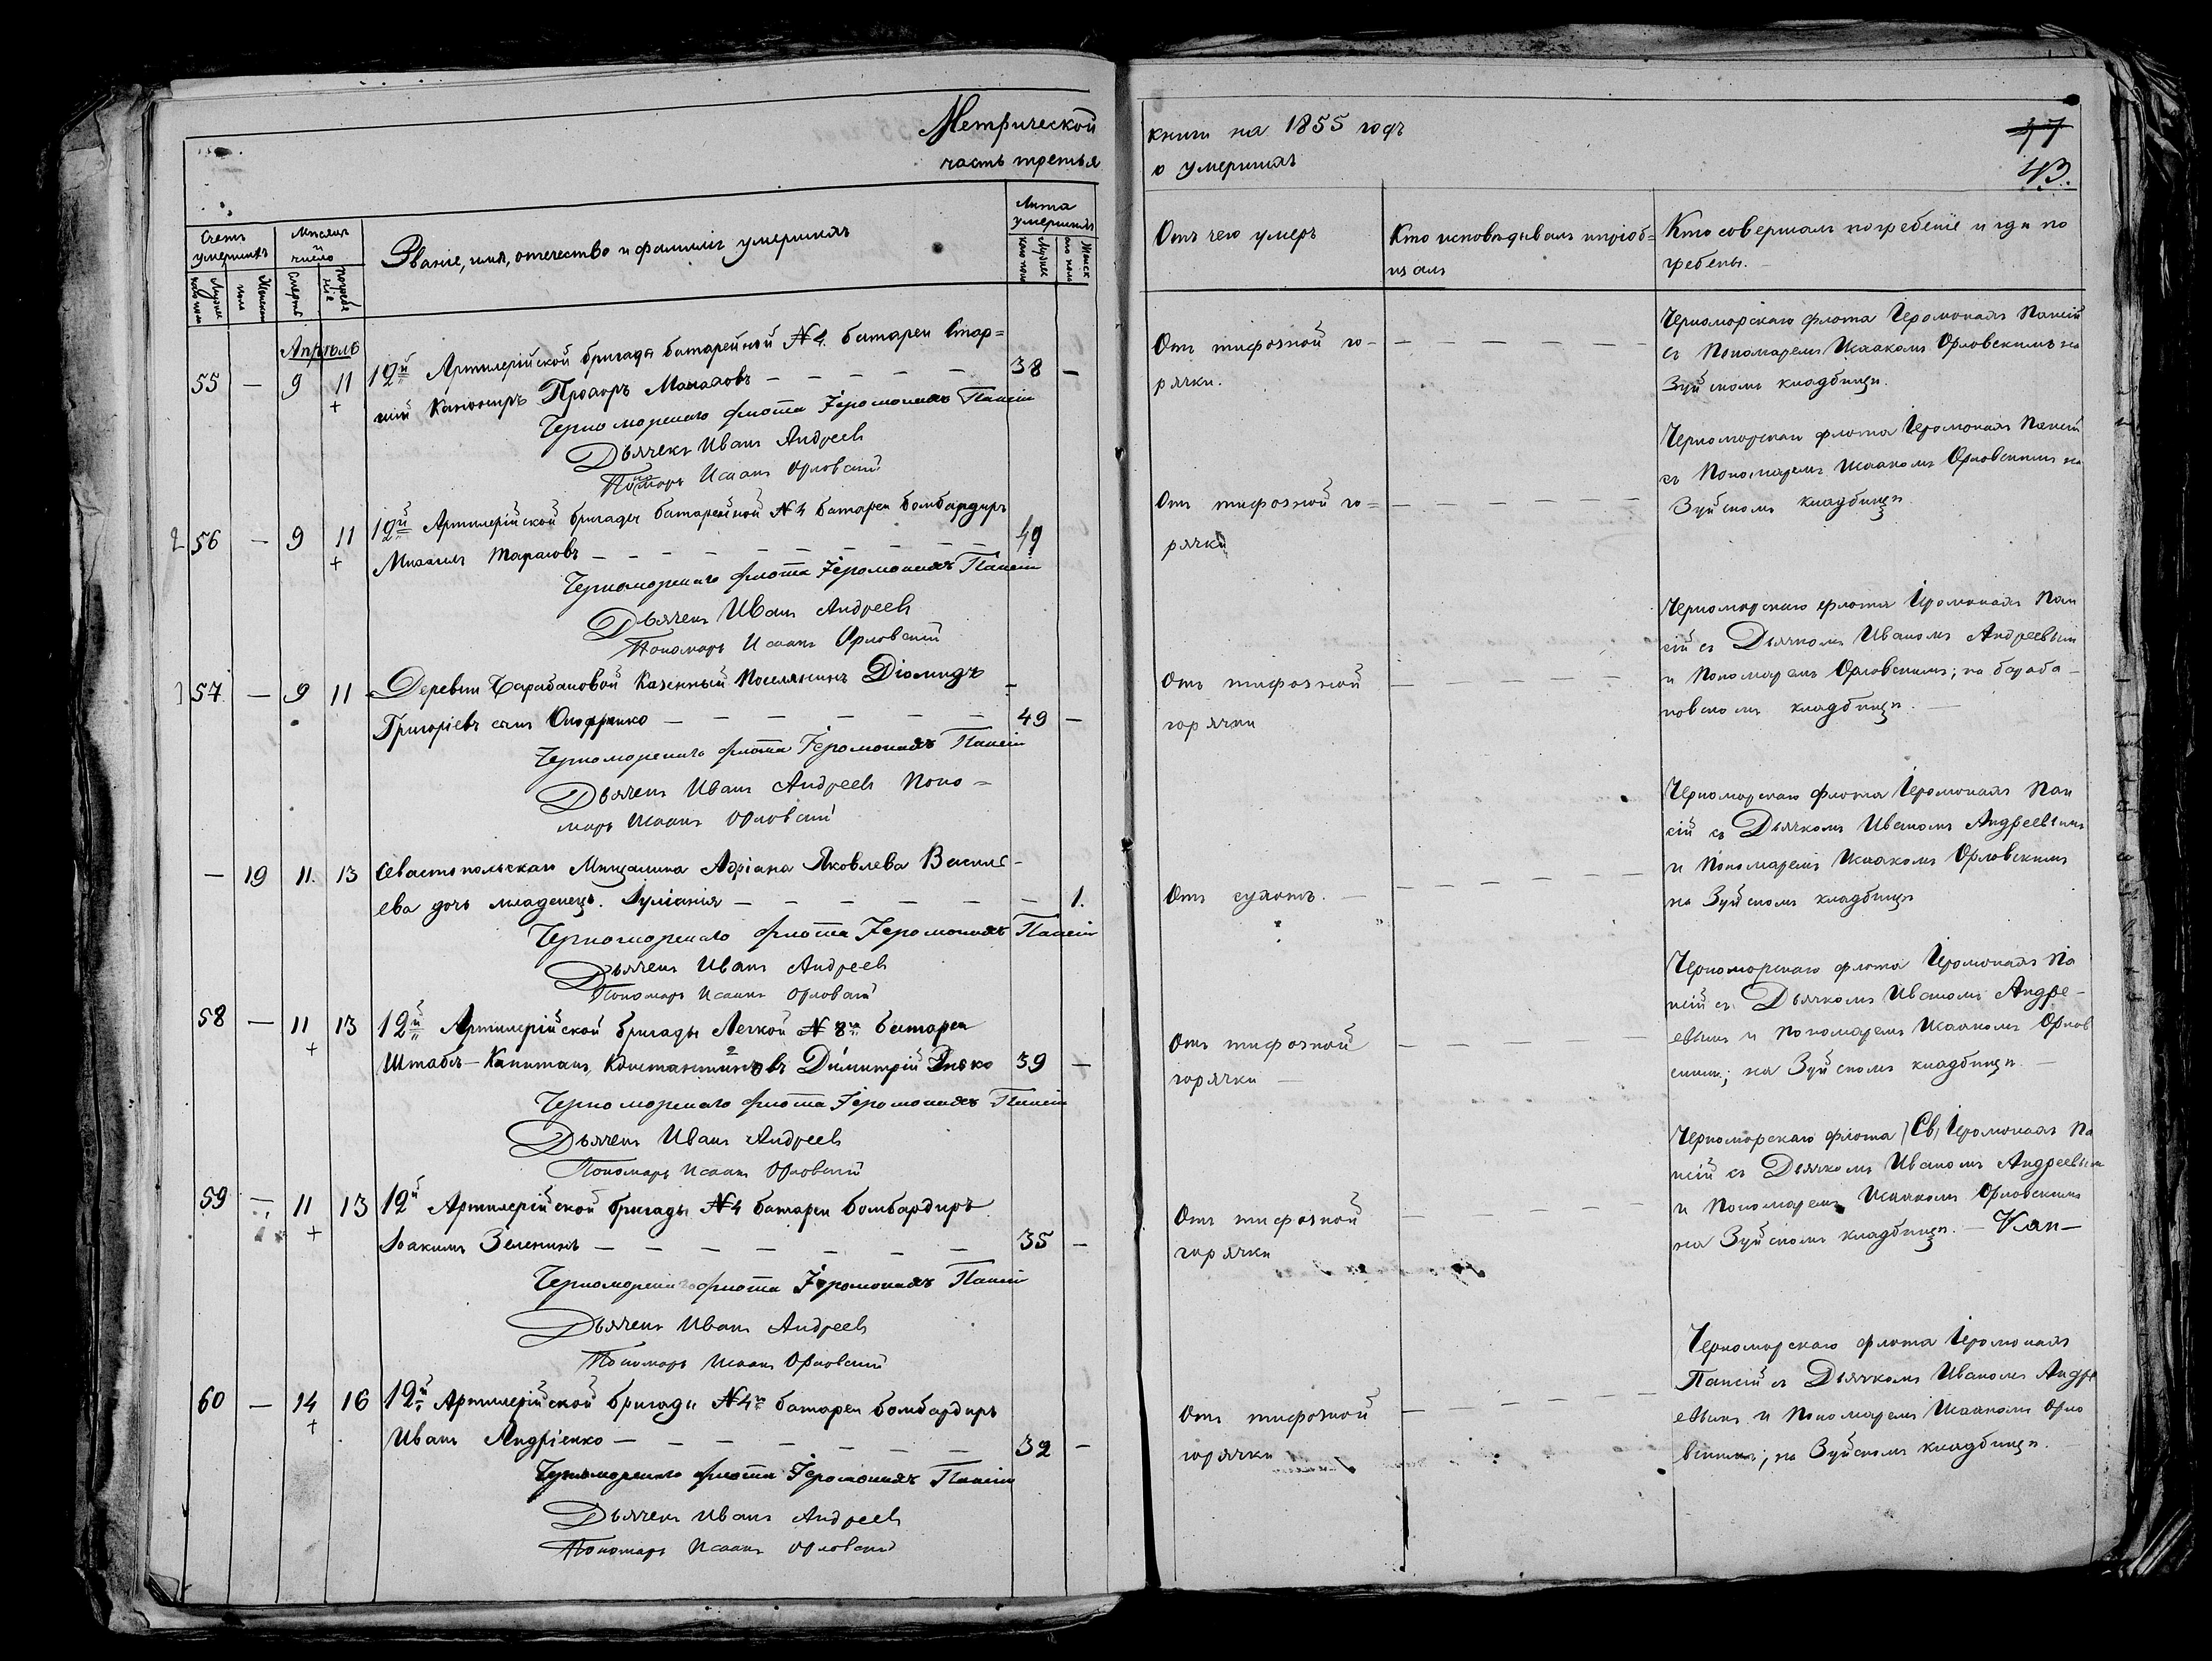 Метрической
часть третья
книги на 1855 годъ
о умершихъ
47
43.
Счетъ умершихъ
Мѣсяцъ и число
Званіе, имя, отечество и фамилія умершихъ
Лѣта умершихъ
Мужес каго пола
Женск пола
Смерть
Погребе ніе
Мужес каго пола
Женск аго пола
Отъ чего умеръ
Кто исповѣдывалъ и пріоб=
щалъ
Кто совершалъ погребеніе и гдѣ по
гребены.
Апрѣль
55 — 9 11 12й Артилерійской бригады батарейной №4. батареи Стар=
шій Канониръ Прохоръ Малаховъ — — — — — 38 —
Черноморскаго флота Іеромонахъ Паисій
Дьячекъ Иванъ Андреевъ
Пономарь Исаакъ Орловскій
Отъ тифозной го-
рячки.
Черноморскаго флота Іеромонахъ Паисій
съ Пономаремъ Исаакомъ Орловскимъ на
Зуйскомъ кладбищѣ.
56 — 9 11 12й Артилерійской бригады батарейной №4 батареи бомбардиръ
Михаилъ Тарасовъ — — — — — — — — 49
Черноморскаго флота Іеромонахъ Паисій
Дьячекъ Иванъ Андреевъ
Пономарь Исаакъ Орловскій
Отъ тифозной го=
рячки
Черноморскаго флота Іеромонахъ Паисій
съ Пономаремъ Исаакомъ Орловскимъ на
Зуйскомъ кладбищѣ
57 — 9 11 Деревни Барабановой Казенный Поселянинъ Діомидъ
Григорієвъ сынъ Онофренко — — — — — — 49 —
Черноморскаго флота Іеромонахъ Паисій
Дьячекъ Иванъ Андреевъ Поно=
марь Исаакъ Орловскій
Отъ тифозной
горячки
Черноморскаго флота Іеромонахъ Паи
сій съ Дьячкомъ Иваномъ Андреевым
и Пономаремъ Орловскимъ; на бараба-
новскомъ кладбищѣ. —
— 19 11. 13 Севастопольскаго Мѣщанина Адріана Яковлева Василь-
ева дочь младенецъ. Іуліанія — — — — — — — 1.
Черноморскаго флота Іеромонахъ Паисій
Дьячекъ Иванъ Андреевъ
Пономарь Исаакъ Орловскій
Отъ сухотъ. —
Черноморскаго флота Іеромонахъ Паи
сій съ Дьячкомъ Иваномъ Андреевымъ
и Пономаремъ Исаакомъ Орловскимъ
на Зуйскомъ кладбищѣ
58 — 11 13 12й Артилерійской бригады Легкой №8й батареи
Штабсъ-Капитанъ, Константиновъ Димитрій 39 —
Черноморскаго флота Іеромонахъ Паисій
Дьячекъ Иванъ Андреевъ
Пономарь Исаакъ Орловскій
Отъ тифозной
горячки —
Черноморскаго флота Іеромонахъ Па
исій съ Дьячкомъ Иваномъ Андре-
евымъ и Пономаремъ Исаакомъ Орлов
скимъ; на Зуйскомъ кладбищѣ. —
59 — 11 13 12й Артилерійской бригады №4 батареи бомбардиръ
Іоакимъ Зеленинъ — — — — — — — 35 —
Черноморскаго флота Іеромонахъ Паисій
Дьячекъ Иванъ Андреевъ
Пономарь Исаакъ Орловскій
Отъ тифозной
горячки
Черноморскаго флота Іеромонахъ Па
исій съ Дьячкомъ Иваномъ Андреевым
и Пономаремъ Исаакомъ Орловскимъ
на Зуйскомъ кладбищѣ. —
60 — 14 16 12й Артилерійской бригады №4й батареи бомбардиръ
Иванъ Андріенко — — — — — — — 32 —
Черноморскаго флота Іеромонахъ Паисій
Дьячекъ Иванъ Андреевъ
Пономарь Исаакъ Орловскій
Отъ тифозной
горячки
Черноморскаго флота Іеромонахъ
Паисій съ Дьячкомъ Иваномъ Андре
евымъ и Пономаремъ Исаакомъ Орло
вскимъ; на Зуйскомъ кладбищѣ. —